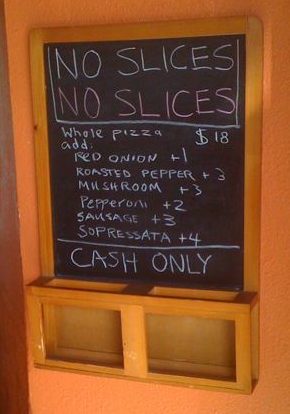 NO SLICES
NO SLICES
Whole pizza $18
add:
RED ONION +1
ROASTED PEPPER +3
MUSHROOM +3
Pepperoni +2
SAUSAGE +3
SOPRESSATA +4
CASH ONLY